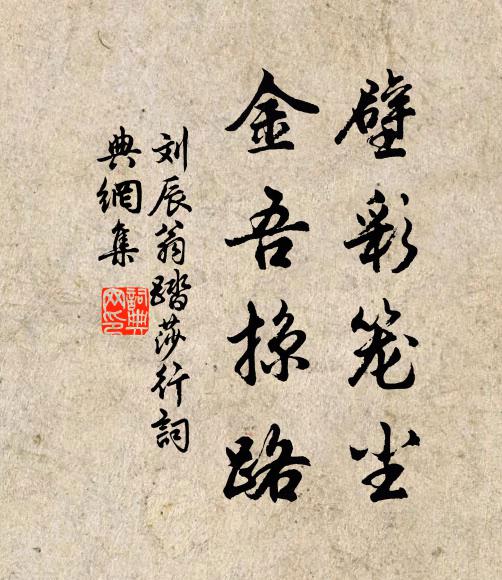 壁彩笼尘
金吾掠路
刘辰翁踏莎行词
典網集
詞典网印